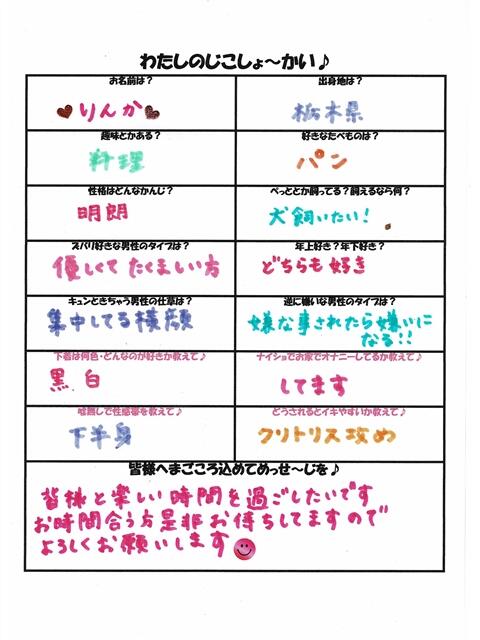 わたしのじこしょ～かい♪
お名前は？
りんか
出身地は？
栃木県
趣味とかある？
料理
好きなたべものは？
パン
性格はどんなかんじ？
明朗
ぺっととか飼ってる？飼えるなら何？
犬飼いたい！
ズバリ好きな男性のタイプは？
優しくてたくましい方
年上好き？年下好き？
どちらも好き
キュンときちゃう男性の仕草は？
集中してる横顔
逆に嫌いな男性のタイプは？
嫌な事されたら嫌いに
なる!!
下着は何色・どんなのが好きか教えて♪
黒、白
ナイショでお家でオナニーしてるか教えて♪
してます
嘘無しで性感帯を教えて♪
下半身
どうされるとイキやすいか教えて♪
クリトリス攻め
皆様へまごころ込めてめっせ～じを♪
皆様と楽しい時間を過ごしたいです
お時間合う方是非お待ちしてますので
よろしくお願いします